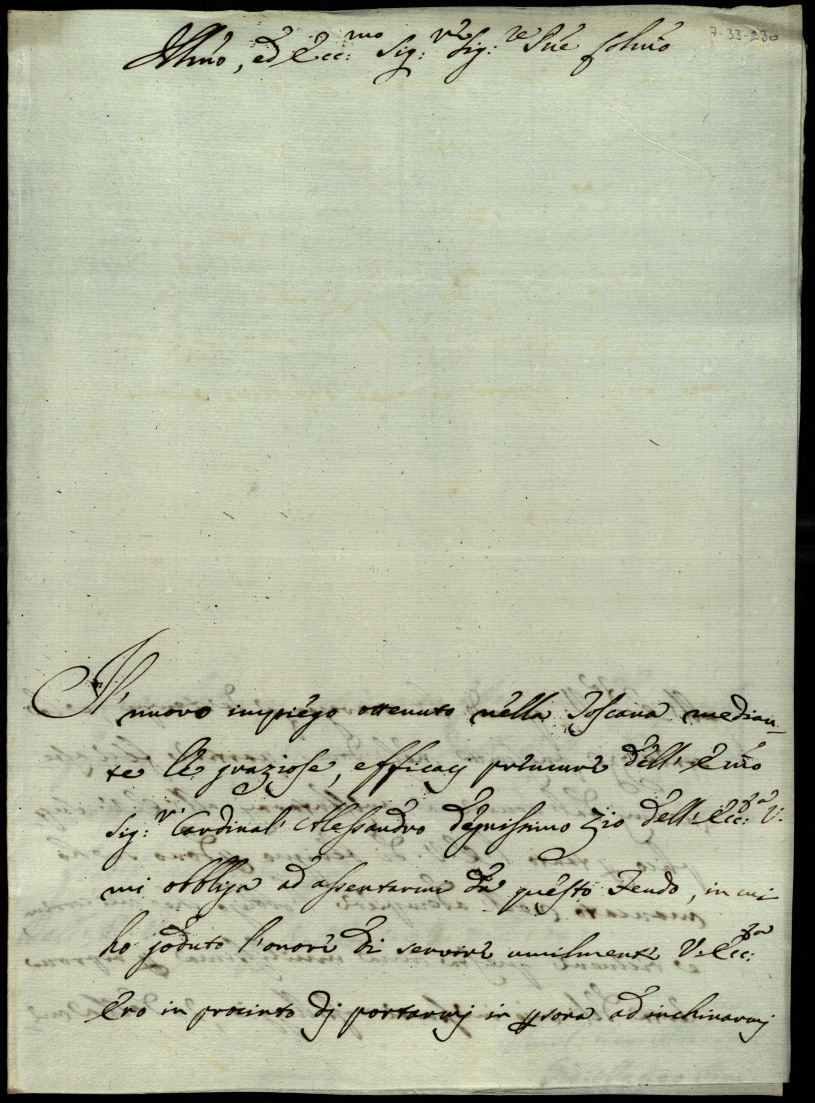 7-33-230
Illmo, ed Ecc:mo Sig:r Sig:re Pne Colmo
Il nuovo impiego ottenuto nella Toscana median-
te le graziose, efficacj premure dell'Emo
Sig:r Cardinal' Alessandro degnissimo Zio dell'Ecc:za V:
mi obbliga ad assentarmi da questo Feudo, in cui
ho goduto l'onore di servire umilmente V: Ecc:za
Ero in procinto dj portarmj in psona ad inchinarmj